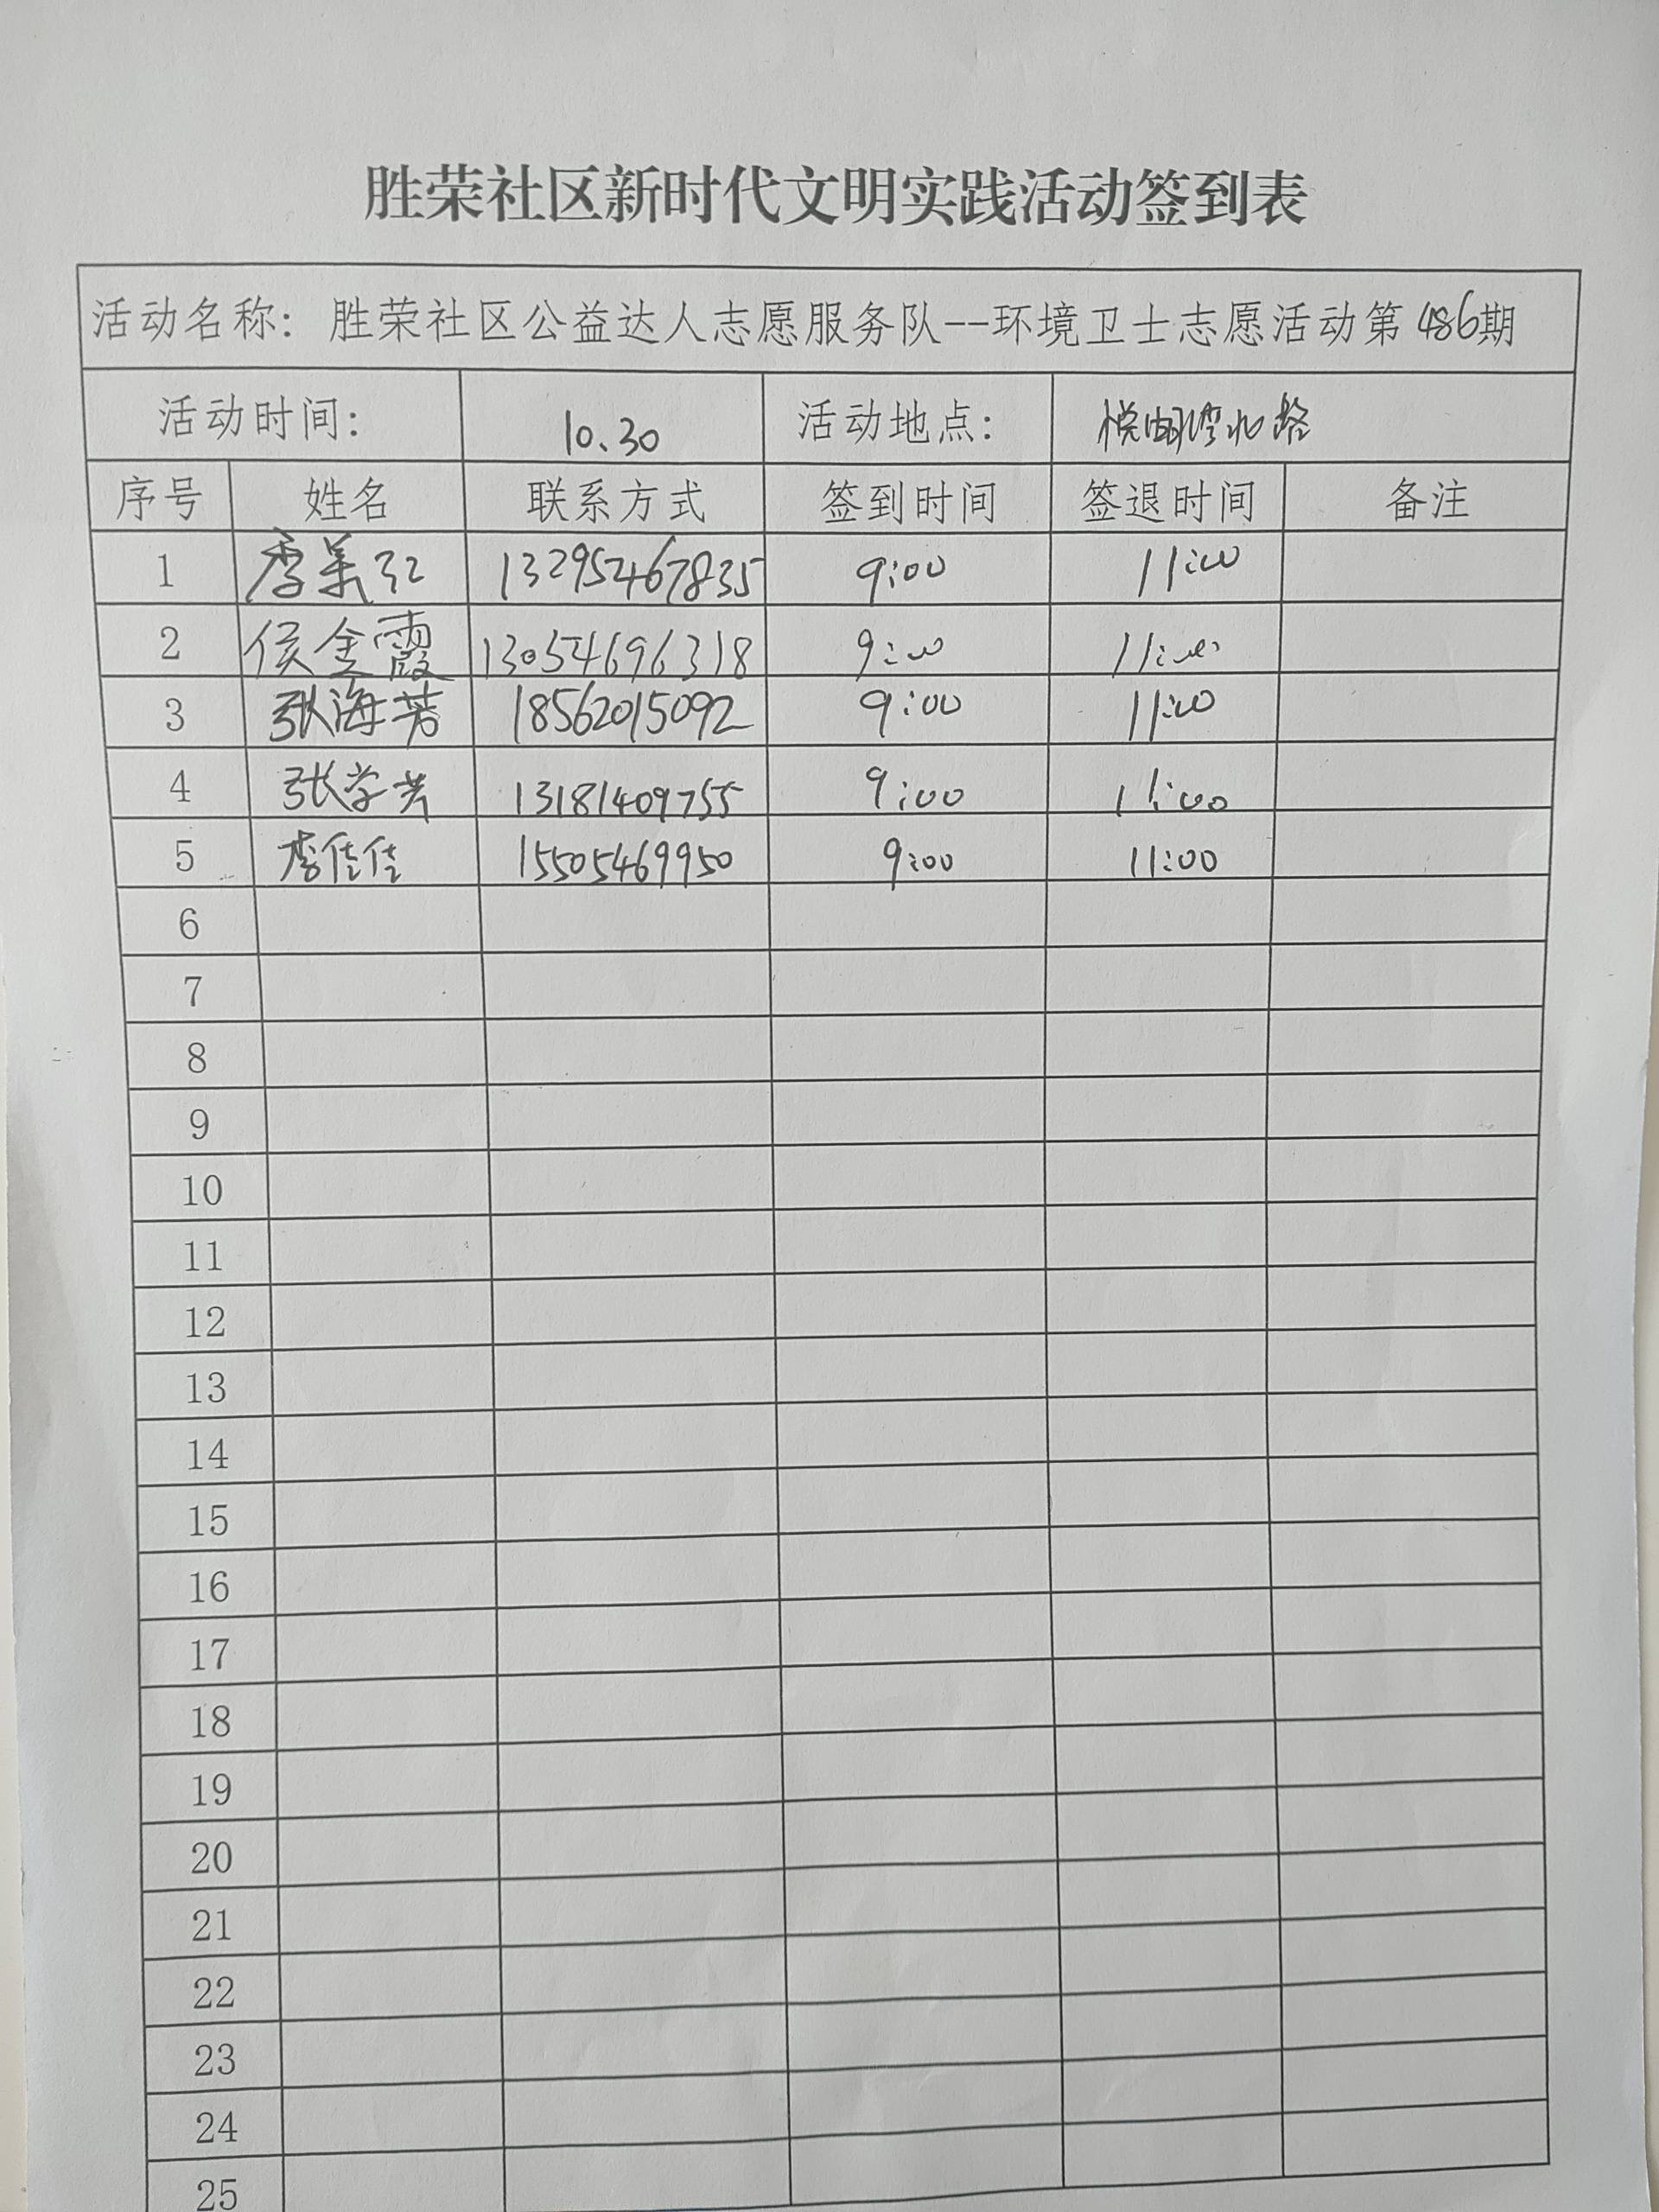 胜荣社区新时代文明实践活动签到表
活动名称：胜荣社区公益达人志愿服务队--环境卫士志愿活动第486期
活动时间： 10.30 活动地点： 悦湖湾北路
序号 姓名 联系方式 签到时间 签退时间 备注
1 李美红 13295467835 9:00 11:00
2 侯金霞 13054696318 9:00 11:00
3 张海芳 18562015092 9:00 11:00
4 张学芳 13181409755 9:00 11:00
5 李佳佳 15505469950 9:00 11:00
6
7
8
9
10
11
12
13
14
15
16
17
18
19
20
21
22
23
24
25